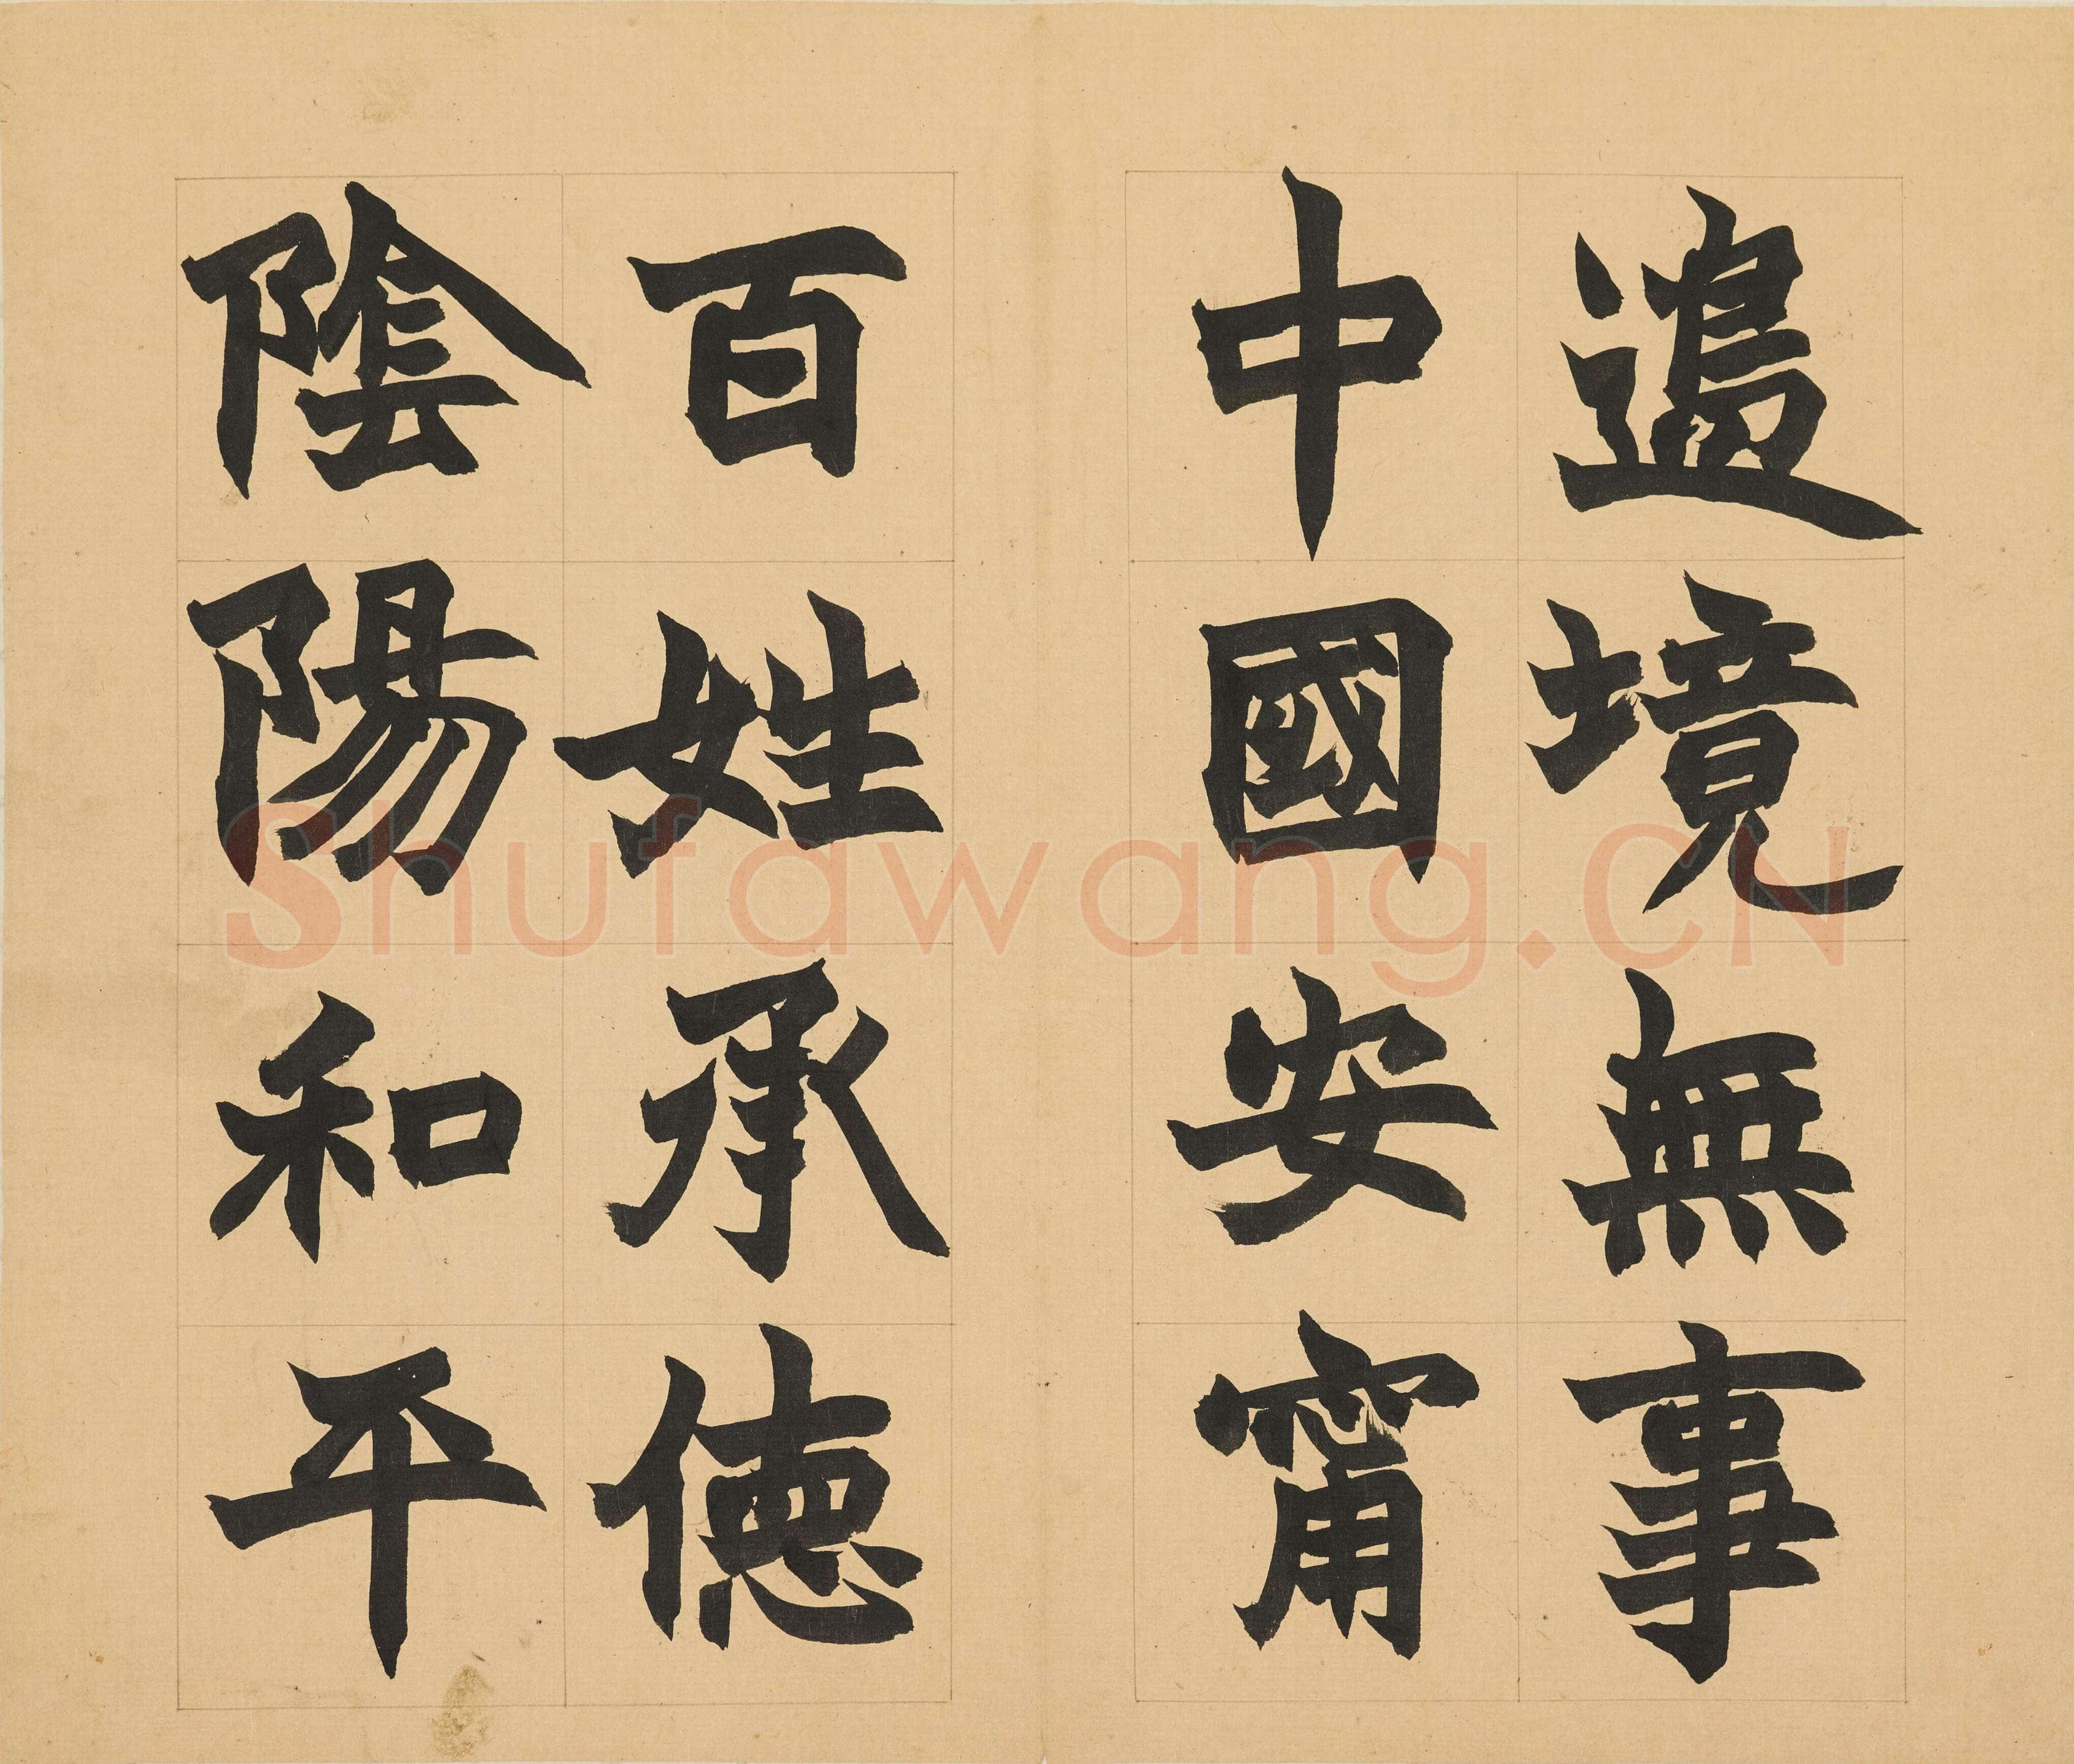 邉境無事
中國安甯
百姓承德
陰陽和平
Shufawang.CN